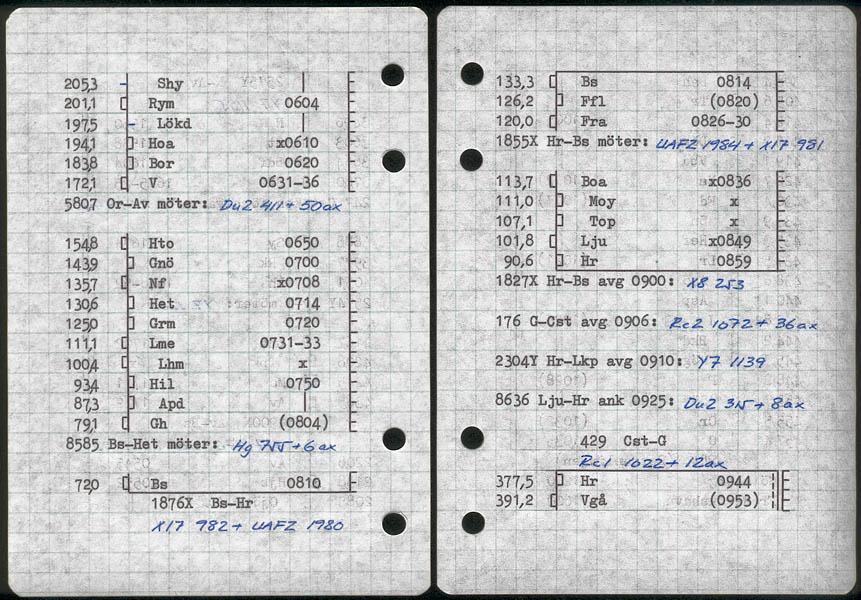 205,3 Shy |
201,1 Rym 0604
197,5 Lökd |
194,1 Hoa x0610
183,8 Bor 0620
172,1 V 0631-36
5807 Or-Av möter: Du2 411 + 50ax
154,8 Hto 0650
143,9 Gnö 0700
135,7 Nf x0708
130,6 Het 0714
125,0 Grm 0720
111,1 Lme 0731-33
100,4 Lhm x
93,4 Hil 0750
87,3 Apd |
79,1 Gh (0804)
8585 Bs-Het möter: Hg 755 + 6ax
72,0 Bs 0810
1876X Bs-Hr
X17 982 + UAFZ 1980
133,3 Bs 0814
126,2 Ffl (0820)
120,0 Fra 0826-30
1855X Hr-Bs möter: UAFZ 1984 + X17 981
113,7 Boa x0836
111,0 Moy x
107,1 Top x
101,8 Lju x0849
90,6 Hr 0859
1827X Hr-Bs avg 0900: X8 253
176 G-Cst avg 0906: Rc2 1072 + 36ax
2304Y Hr-Lkp avg 0910: Y7 1139
8636 Lju-Hr ank 0925: Du2 315 + 8ax
429 Cst-G
Rc1 1022 + 12ax
377,5 Hr 0944
391,2 Vgå (0953)